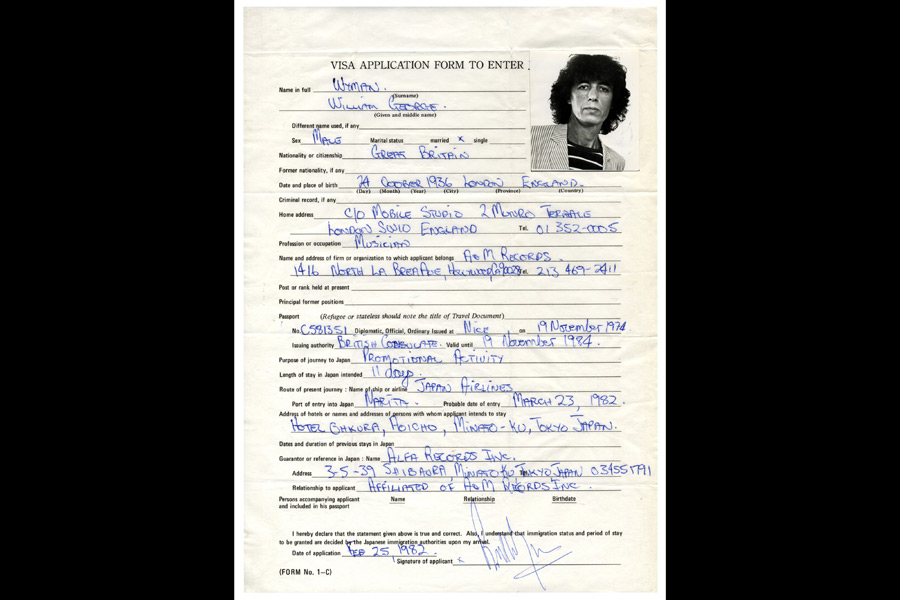 VISA APPLICATION FORM TO ENTER
Name in full WYMAN.
(Surname)
WILLIAM GEORGE.
(Given and middle name)
Different name used, if any
Sex MALE Marital status married x single
Nationality or citizenship GREAT BRITAIN
Former nationality, if any
Date and place of birth 24 OCTOBER 1936 LONDON ENGLAND.
(Day) (Month) (Year) (City) (Province) (Country)
Criminal record, if any
Home address C/O MOBILE STUDIO 2 MUNRO TERRACE
LONDON SW10 ENGLAND Tel. 01 352-0005
Profession or occupation MUSICIAN
Name and address of firm or organization to which applicant belongs A&M RECORDS.
1416 NORTH LA BREA AVE, HOLLYWOOD Tel. 213 469-2411
Post or rank held at present
Principal former positions
Passport (Refugee or stateless should note the title of Travel Document)
No. C581351 Diplomatic, Official, Ordinary Issued at NICE on 19 November 1974.
Issuing authority BRITISH CONSULATE. Valid until 19 November 1984.
Purpose of journey to Japan PROMOTIONAL ACTIVITY
Length of stay in Japan intended 11 days.
Route of present journey : Name of ship or airline JAPAN AIRLINES
Port of entry into Japan NARITA. Probable date of entry MARCH 23, 1982.
Address of hotels or names and addresses of persons with whom applicant intends to stay
HOTEL OHKURA, AOICHO, MINATO-KU, TOKYO JAPAN.
Dates and duration of previous stays in Japan
Guarantor or reference in Japan : Name ALFA RECORDS INC.
Address 3-5-39 SHIBAURA, MINATO KU TOKYO JAPAN 034551791
Relationship to applicant AFFILIATED OF A&M RECORDS INC.
Persons accompanying applicant Name Relationship Birthdate
and included in his passport
I hereby declare that the statement given above is true and correct. Also, I understand that immigration status and period of stay
to be granted are decided by the Japanese immigration authorities upon my arrival.
Date of application FEB 25 1982.
Signature of applicant x
(FORM No. 1-C)